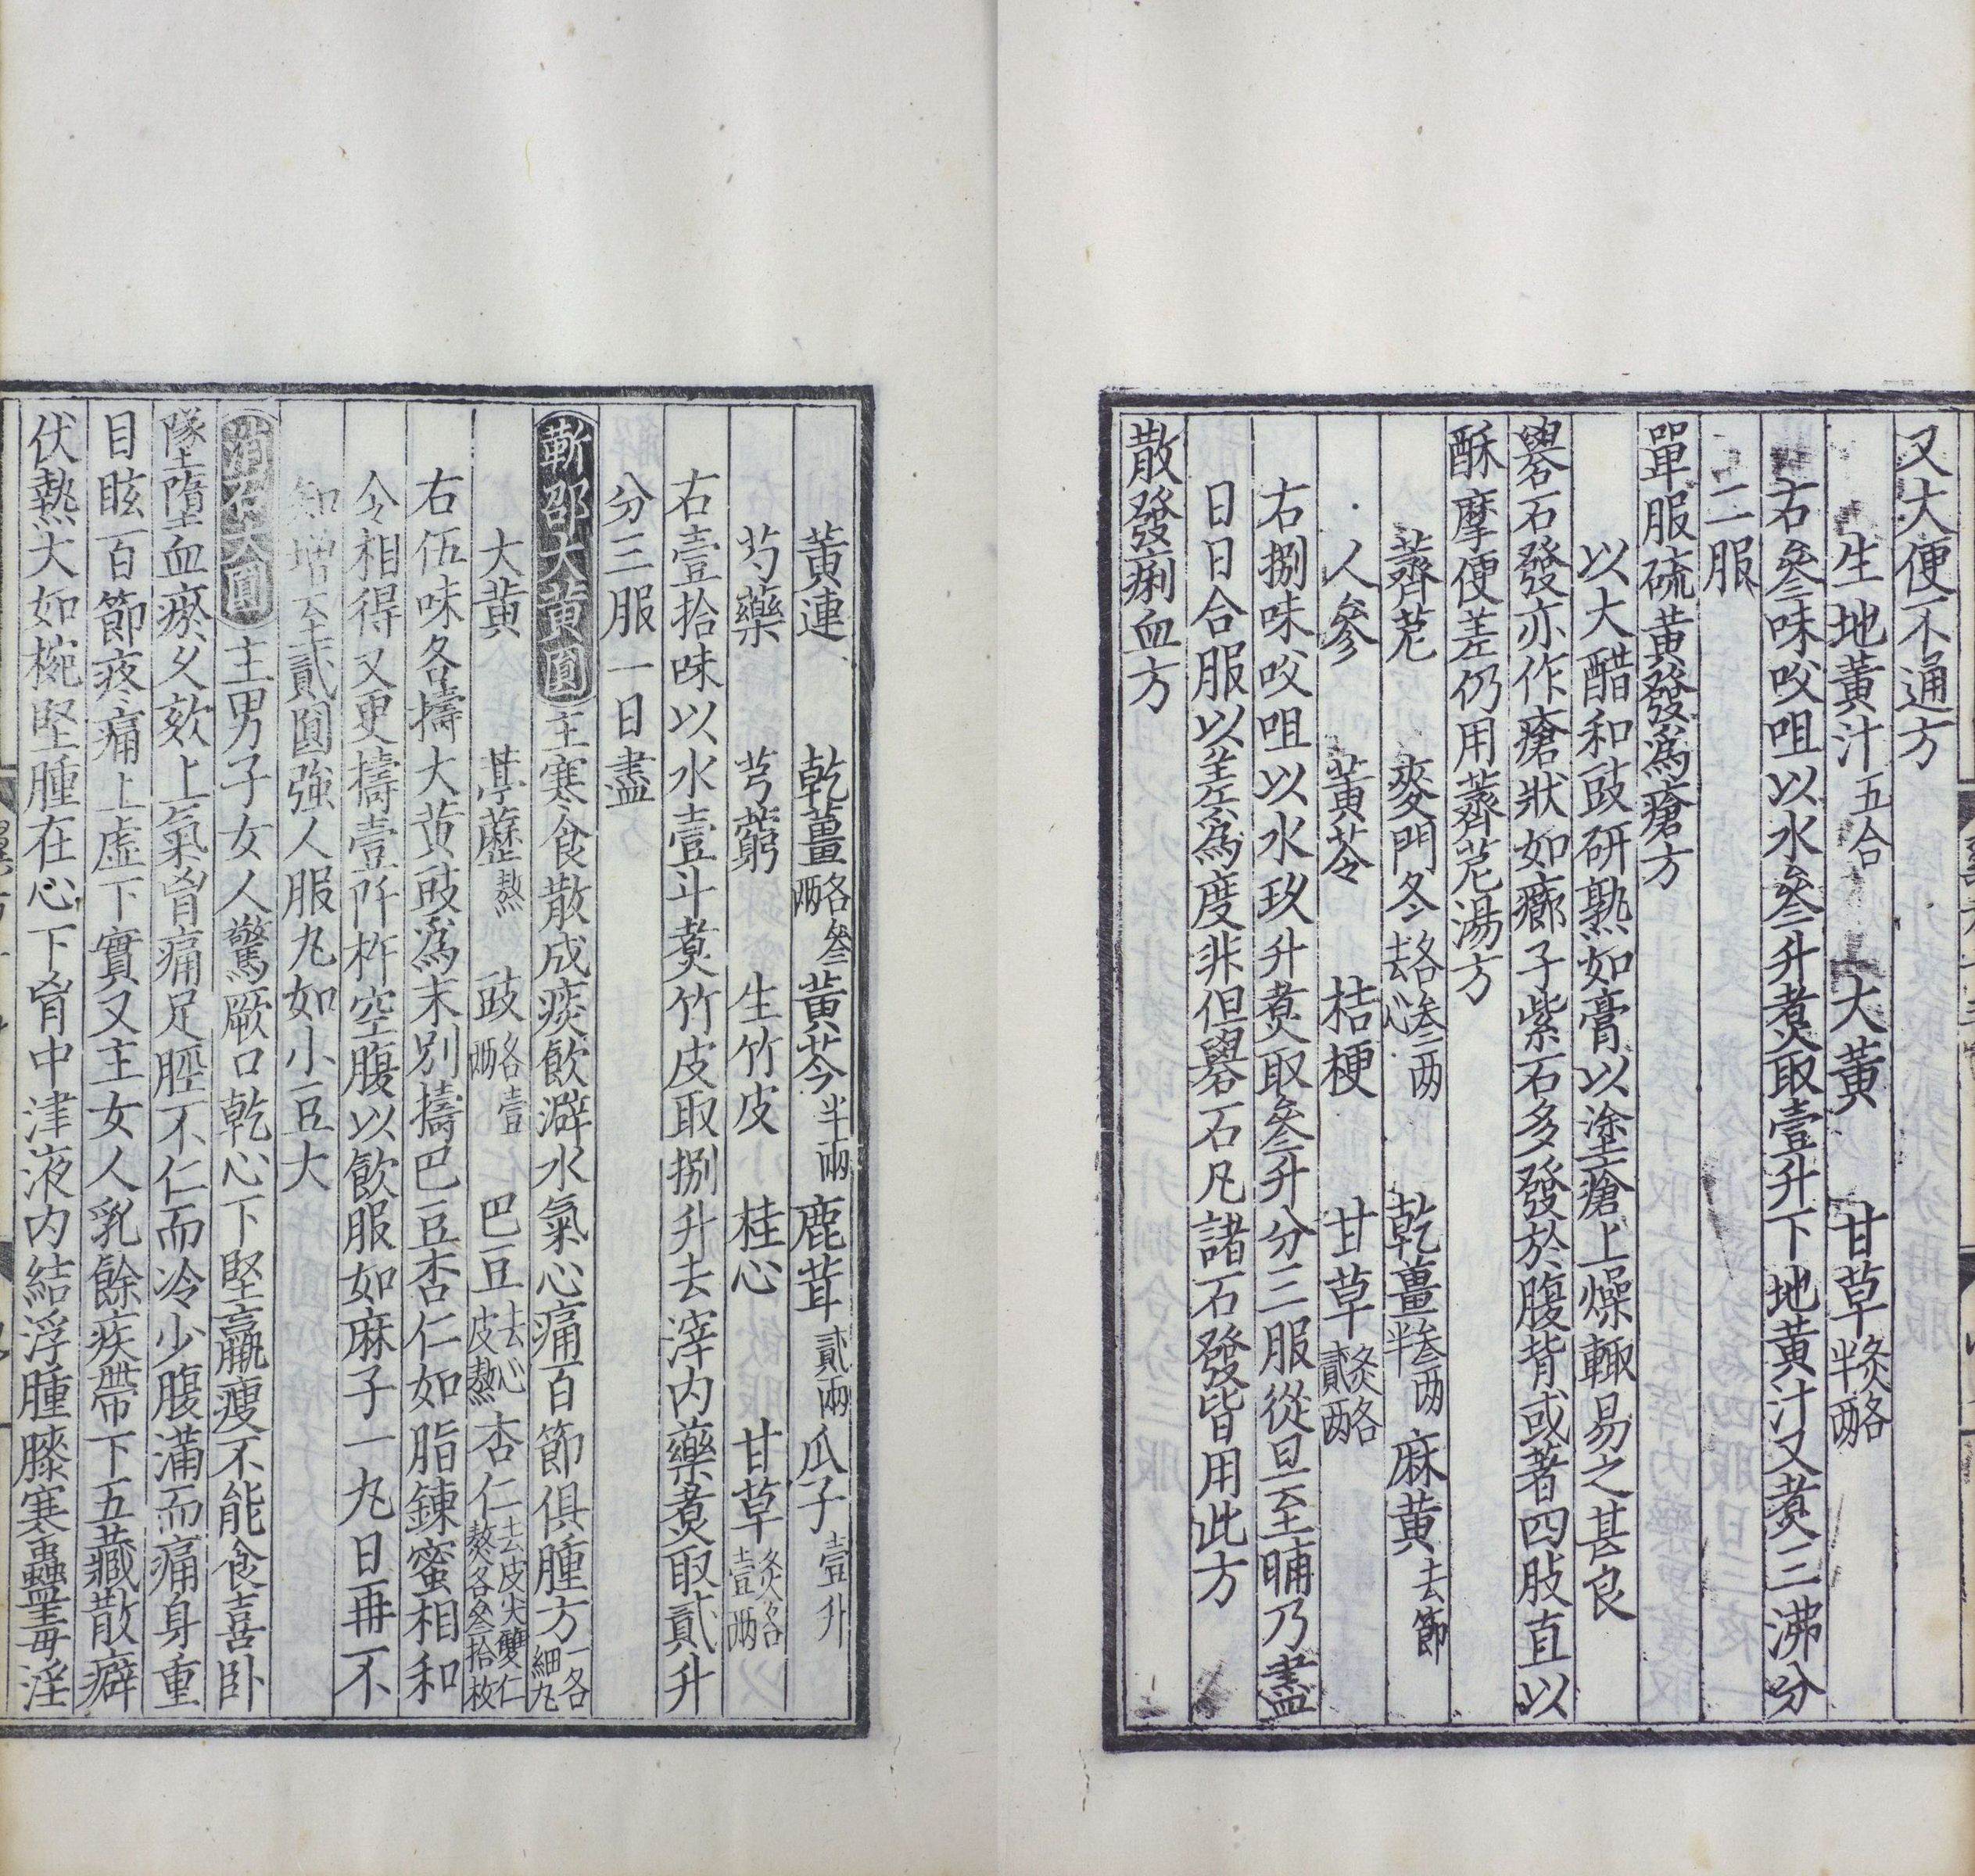 又大便不通方
生地黃汁五合 大黃 甘草炙各半兩
右叄味㕮咀以水叄升煮取壹升下地黃汁又煮三沸分
二服
單服硫黃發爲瘡方
以大醋和豉研熟如膏以塗瘡上燥輙易之甚良
礜石發亦作瘡狀如癤子紫石多發於腹背或著四肢直以
酥摩便差仍用薺苨湯方
薺苨 麥門冬去心各叄兩 乾薑叄兩半 麻黃去節
人參 黃芩 桔梗 甘草炙各貳兩
右捌味㕮咀以水玖升煮取叄升分三服從旦至晡乃盡
日日合服以差爲度非但礜石凡諸石發皆用此方
散發痢血方
黃連 乾薑各叄兩 黃芩半兩 鹿茸貳兩 瓜子壹升
芍藥 芎藭 生竹皮 桂心 甘草炙各壹兩
右壹拾味以水壹斗煮竹皮取捌升去滓内藥煮取貳升
分三服一日盡
靳邵大黃圓主寒食散成痰飲澼水氣心痛百節俱腫方一名細丸
大黃 葶藶熬 豉各壹兩 巴豆去心皮熬 杏仁去皮尖雙仁熬各叄拾枚
右伍味各擣大黃豉爲末別擣巴豆杏仁如脂鍊蜜相和
令相得又更擣壹阡杵空腹以飲服如麻子一丸日再不
知增至貳圓強人服丸如小豆大
消石大圓主男子女人驚厥口乾心下堅羸瘦不能食喜卧
墜墮血瘀久欬上氣胷痛足脛不仁而冷少腹滿而痛身重
目眩百節疼痛上虛下實又主女人乳餘疾帶下五藏散癖
伏熱大如椀堅腫在心下胷中津液内結浮腫膝寒蠱毒淫